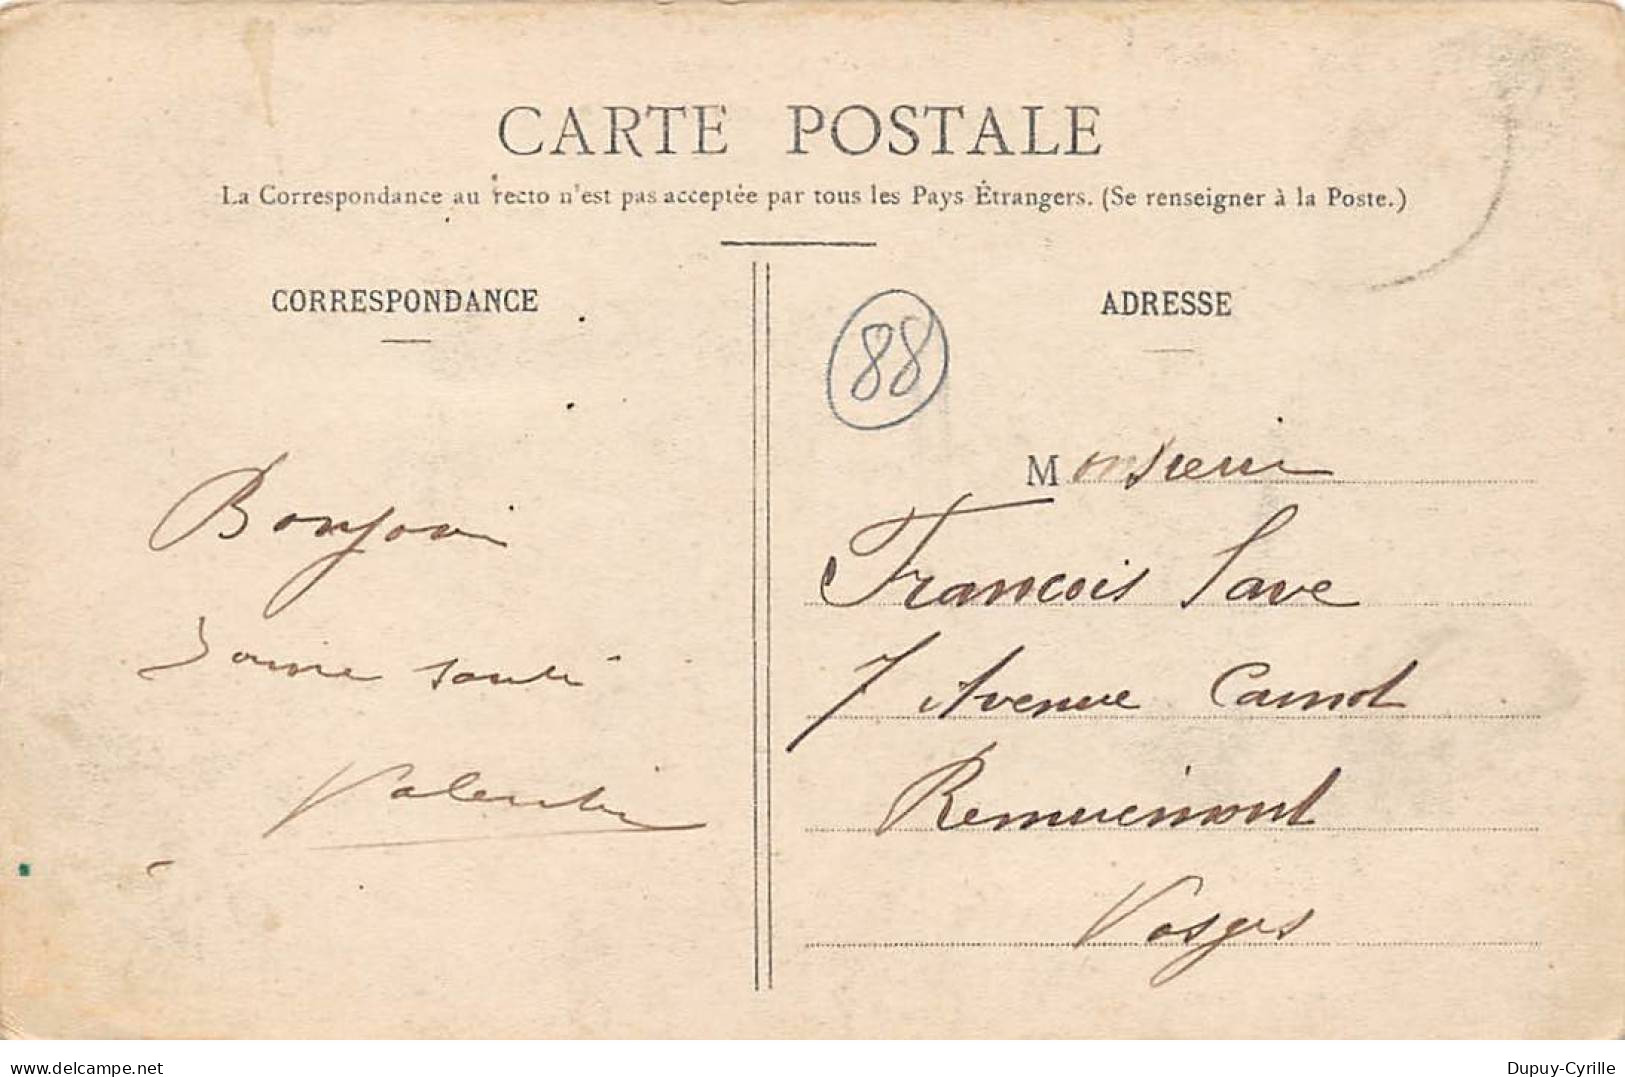 CARTE POSTALE
La Correspondance au recto n'est pas acceptée par tous les Pays Étrangers. (Se renseigner à la Poste.)
CORRESPONDANCE
Bonjour
Bonne santé
Valentin
ADRESSE
88
Monsieur
Francois Save
7 Avenue Carnot
Remiremont
Vosges
delcampe.net
Dupuy-Cyrille